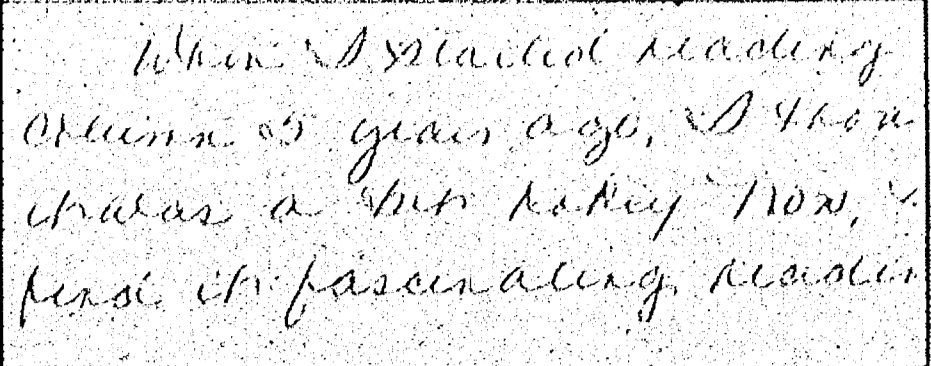 When I started reading
column 5 years ago, I thou
it was a bit hokey Now, I
find it fascinating readin